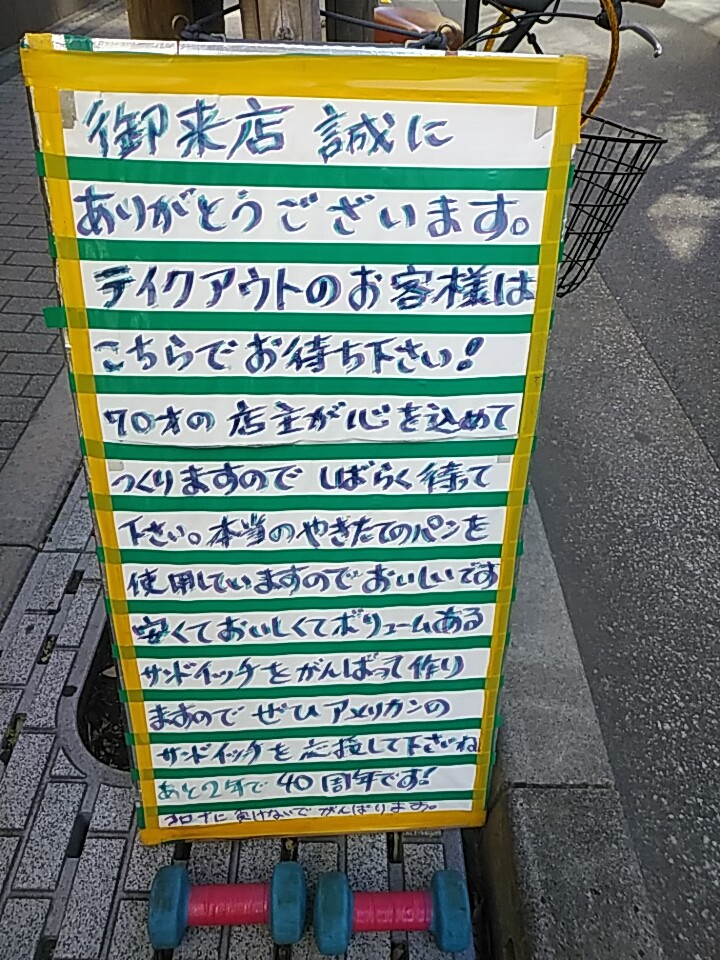 御来店 誠に
ありがとうございます。
テイクアウトのお客様は
こちらでお待ち下さい!
70才の店主が心を込めて
つくりますので しばらく待って
下さい。本当のやきたてのパンを
使用していますのでおいしいです
安くておいしくてボリュームある
サンドイッチをがんばって作り
ますので ぜひアメリカンの
サンドイッチを応援して下さいね
あと2年で 40周年です!
コロナに負けないでがんばります。